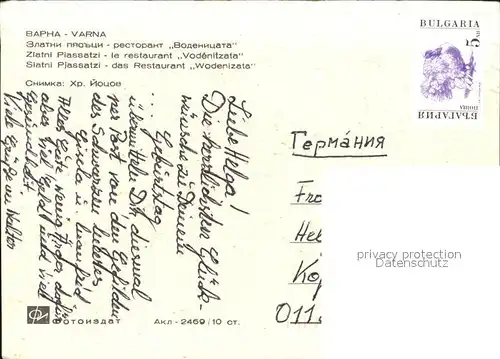 ВАРНА - VARNA
Златни пясъци - ресторант „Воденицата"
Zlatni Piassatzi - le restaurant „Vodénitzata"
Slatni Pjassatzi - das Restaurant „Wodenizata"
Снимка: Хр. Йоцов
BULGARIA
5
ПОЩА
БЪЛГАРИЯ
Liebe Helga!
Die herzlichsten Glück-
wünsche zu Deinem
Geburtstag
übermittelt Dir diesmal
per Post von den Gefilden
des Schwarzen Meeres
Gerda u. Manfred
Alles Gute, wenig Ärger, dafür
aber viel Geld und viel
Gesundheit
Viele Grüße an Walter
Германия
Fr
Hel
Kö
011
privacy protection
Datenschutz
ФОТОИЗДАТ
Акл - 2469/10 ст.